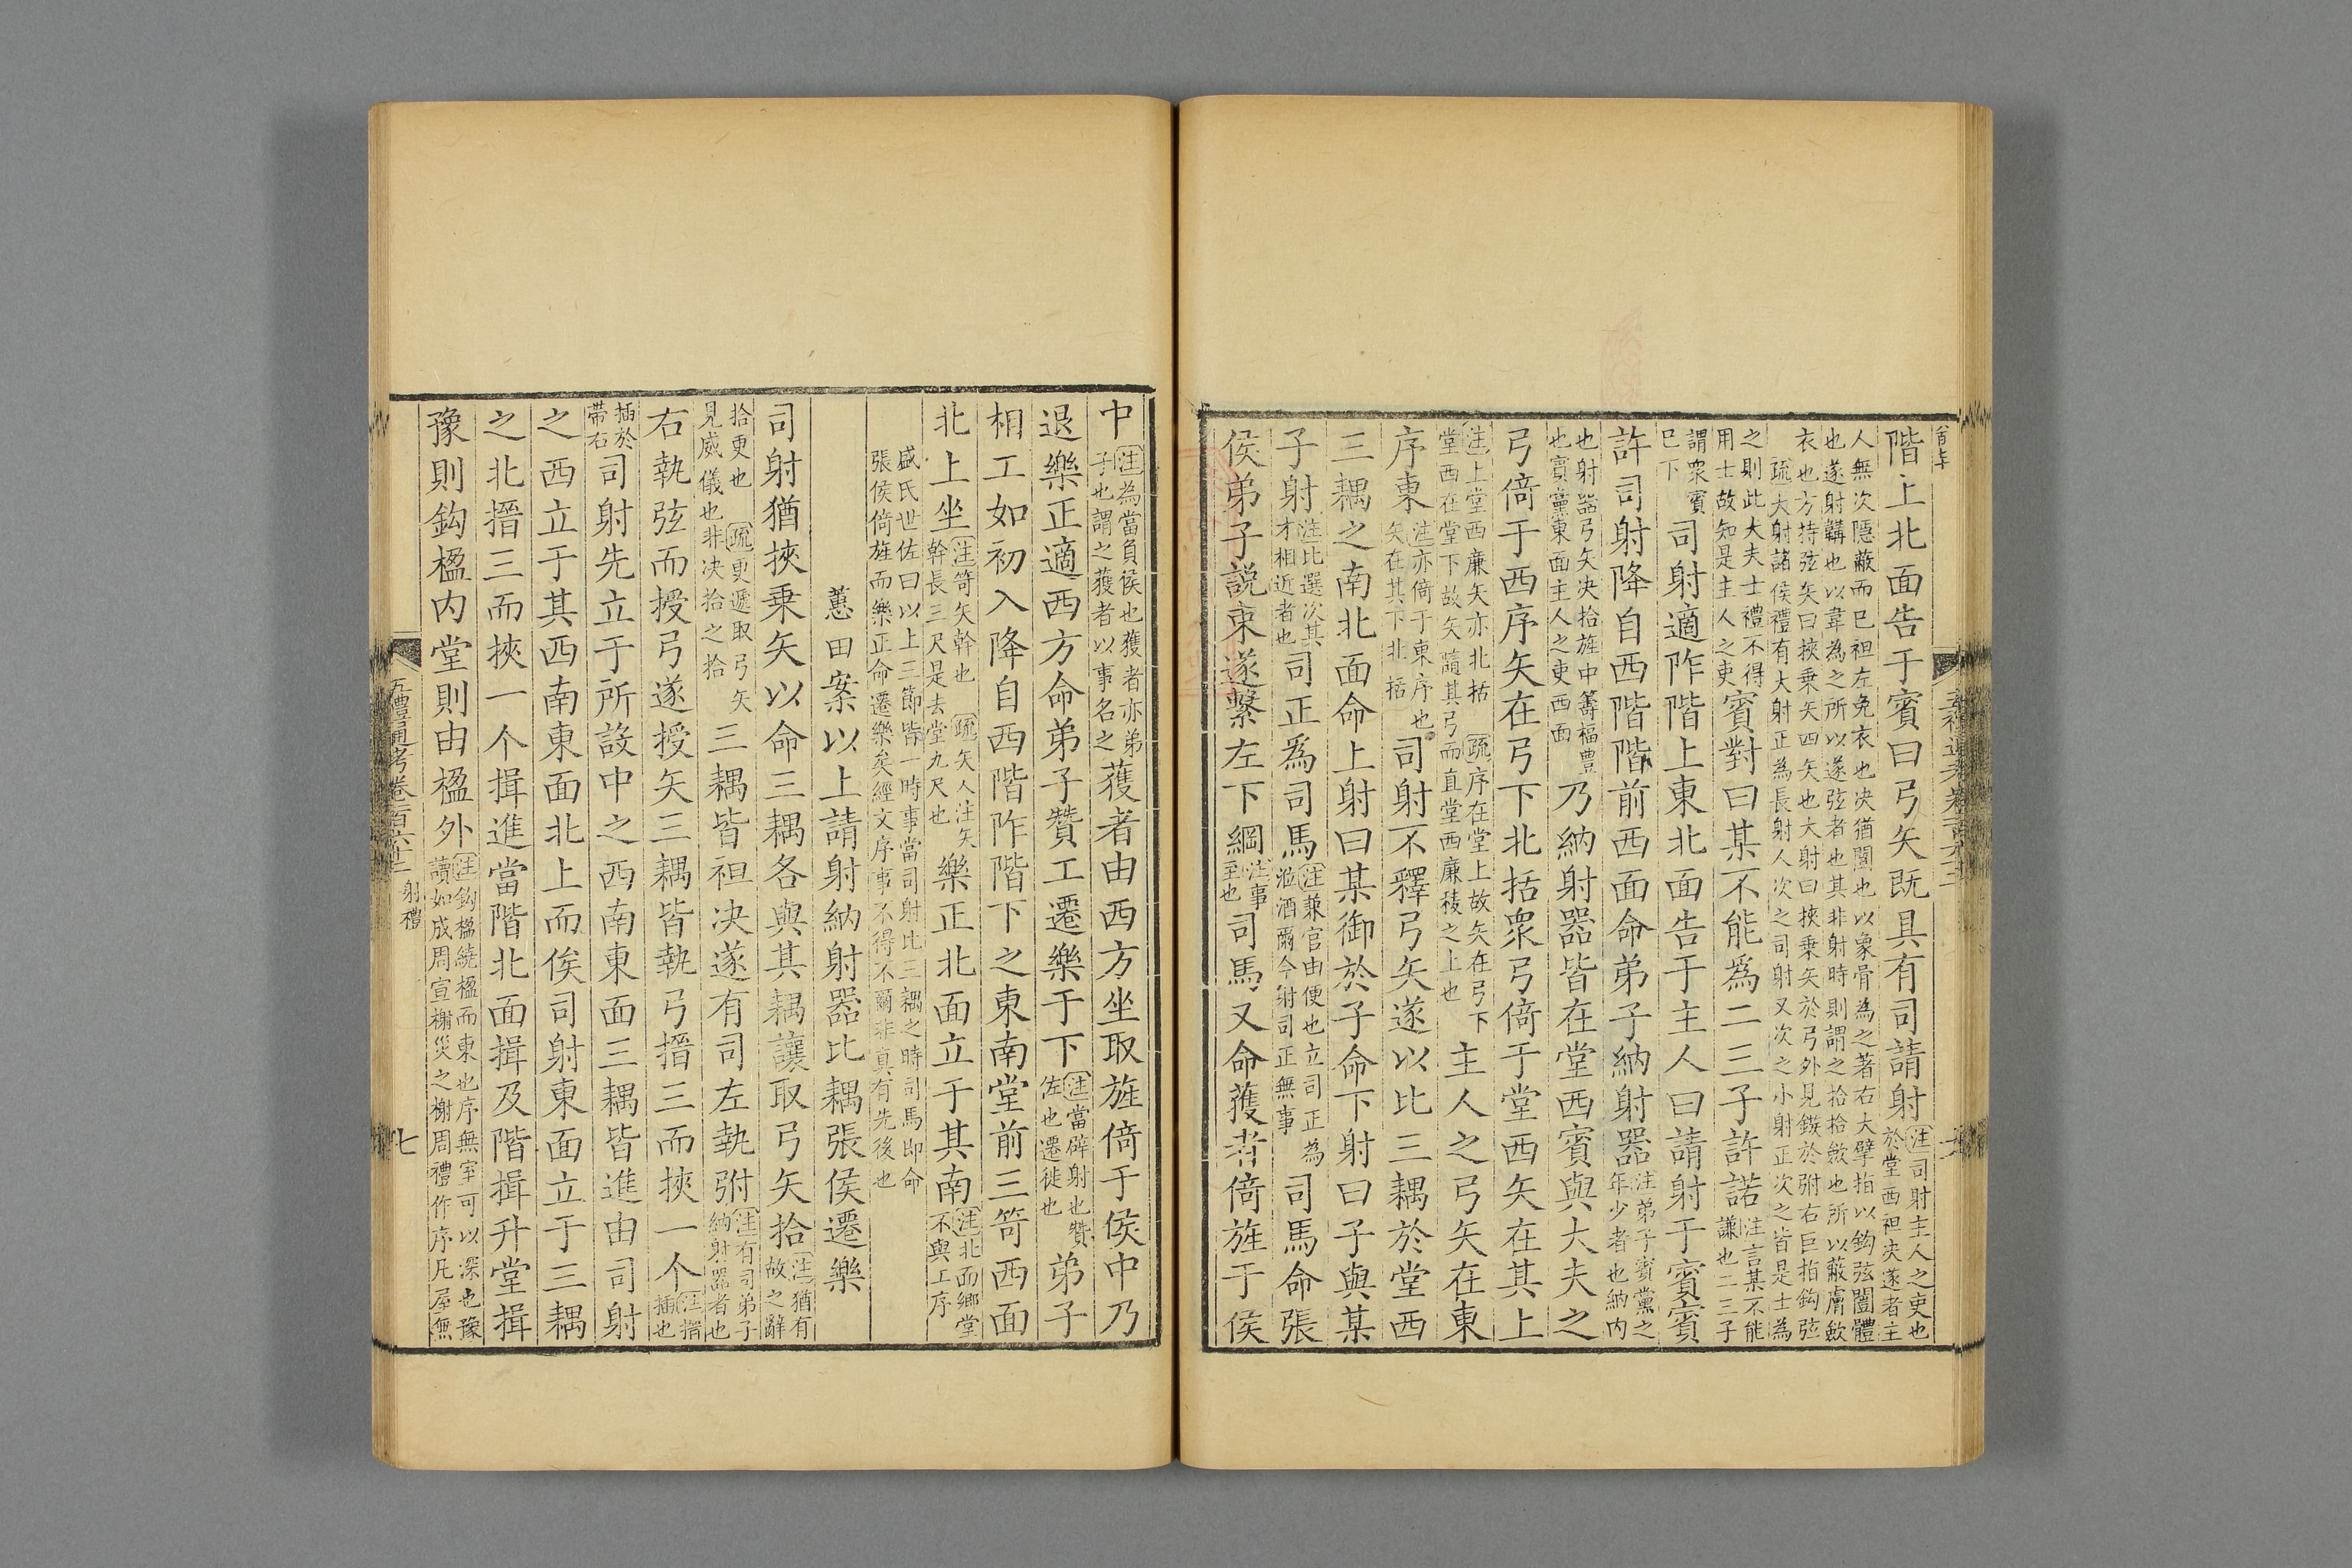 階上北面告于賓曰弓矢既具有司請射注司射主人之吏也於堂西袒决遂者主
人無次隱蔽而已袒左免衣也决猶闓也以象骨為之著右大擘指以鈎弦闓體
也遂射韝也以韋為之所以遂弦者也其非射時則謂之拾拾斂也所以蔽膚斂
衣也方持弦矢曰挾乗矢四矢也大射曰挾乗矢於弓外見鏃於弣右巨指鈎弦
疏大射諸侯禮有大射正為長射人次之司射又次之小射正次之皆是士為
之則此大夫士禮不得用士故知是主人之吏賓對曰某不能爲二三子許諾注言某不能謙也二三子
謂衆賓已下司射適阼階上東北面告于主人曰請射于賓賓
許司射降自西階階前西面命弟子納射器注弟子賓黨之年少者也納内
也射器弓矢决拾旌中籌楅豐也賓黨東面主人之吏西面乃納射器皆在堂西賓與大夫之
弓倚于西序矢在弓下北括衆弓倚于堂西矢在其上
注上堂西廉矢亦北括疏序在堂上故矢在弓下堂西在堂下故矢隨其弓而直堂西廉稜之上也主人之弓矢在東
序東注亦倚于東序也矢在其下北括司射不釋弓矢遂以比三耦於堂西
三耦之南北面命上射曰某御於子命下射曰子與某
子射注比選次其才相近者也司正爲司馬注兼官由便也立司正為涖酒爾今射司正無事司馬命張
侯弟子說束遂繫左下綱注事至也司馬又命獲者倚旌于侯
中注為當負侯也獲者亦弟子也謂之獲者以事名之獲者由西方坐取旌倚于侯中乃
退樂正適西方命弟子贊工遷樂于下注當辟射也贊佐也遷徙也弟子
相工如初入降自西階阼階下之東南堂前三笴西面
北上坐注笴矢幹也疏矢人注矢幹長三尺是去堂九尺也樂正北面立于其南注北面鄉堂不與工序
盛氏世佐曰以上三節皆一時事當司射比三耦之時司馬即命
張侯倚旌而樂正命遷樂矣經文序事不得不爾非真有先後也
蕙田案以上請射納射器比耦張侯遷樂
司射猶挾乗矢以命三耦各與其耦讓取弓矢拾注猶有故之辭
拾更也疏更遞取弓矢見威儀也非决拾之拾三耦皆袒决遂有司左執弣注有司弟子納射器者也
右執弦而授弓遂授矢三耦皆執弓搢三而挾一个注搢插也
插於帶右司射先立于所設中之西南東面三耦皆進由司射
之西立于其西南東面北上而俟司射東面立于三耦
之北搢三而挾一个揖進當階北面揖及階揖升堂揖
豫則鈎楹内堂則由楹外注鈎楹繞楹而東也序無室可以深也豫讀如成周宣榭災之榭周禮作序凡屋無
五禮通考卷一百六十二 射禮 七